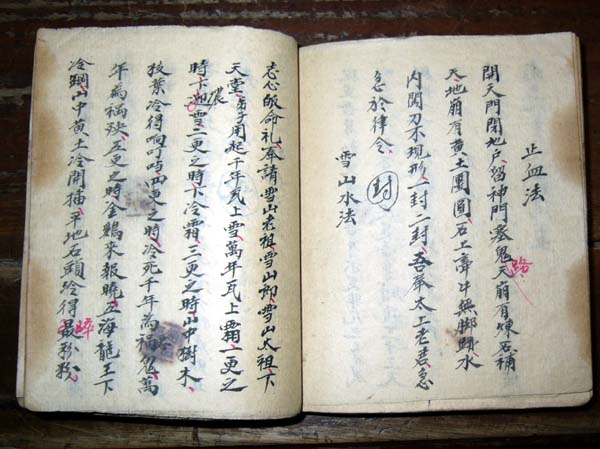 止血法
開天門閉地户、留神門塞鬼路天崩有煉石補
天、地崩有黄土團圓、石上牽牛無脚蹟、水
内開刀不現形、一封二封、吾奉太上老君急
急於律令、封
雪山水法
志心皈命礼、奉請雪山老祖、雪山郎、雪山大祖、下
天堂、弟子用起千年瓦上雪、萬年瓦上霜、一更之
時下濃雪、二更之時下冷霜、三更之時山中樹木、
枝葉冷得响叮、四更之時、冷死千年為禍鬼、萬
年為禍殃、五更之時金鷄来報曉、五海龍王下
冷鋼、山中黄土冷開插、平地石頭冷得碎粉粉、